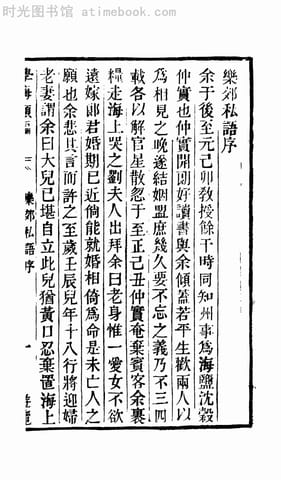 时光图书馆 atimebook.com
樂郊私語序
余于後至元己卯教授餘干時同知州事為海鹽沈毅
仲實也仲實開朗好讀書與余傾蓋若平生歡兩人以
為相見之晚遂結姻盟庶幾久要不忘之義乃不三四
載各以解官星散忽于至正己丑仲實奄棄賓客余裹
糧走海上哭之劉夫人出拜余曰老身惟一愛女不欲
遠嫁郎君婚期已近倘能就婚相倚為命是未亡人之
願也余悲其言而許之至歲壬辰兒年十八行將迎婦
老妻謂余曰大兒已堪自立此兒猶黃口忍棄置海上
學海類編
樂郊私語序
一